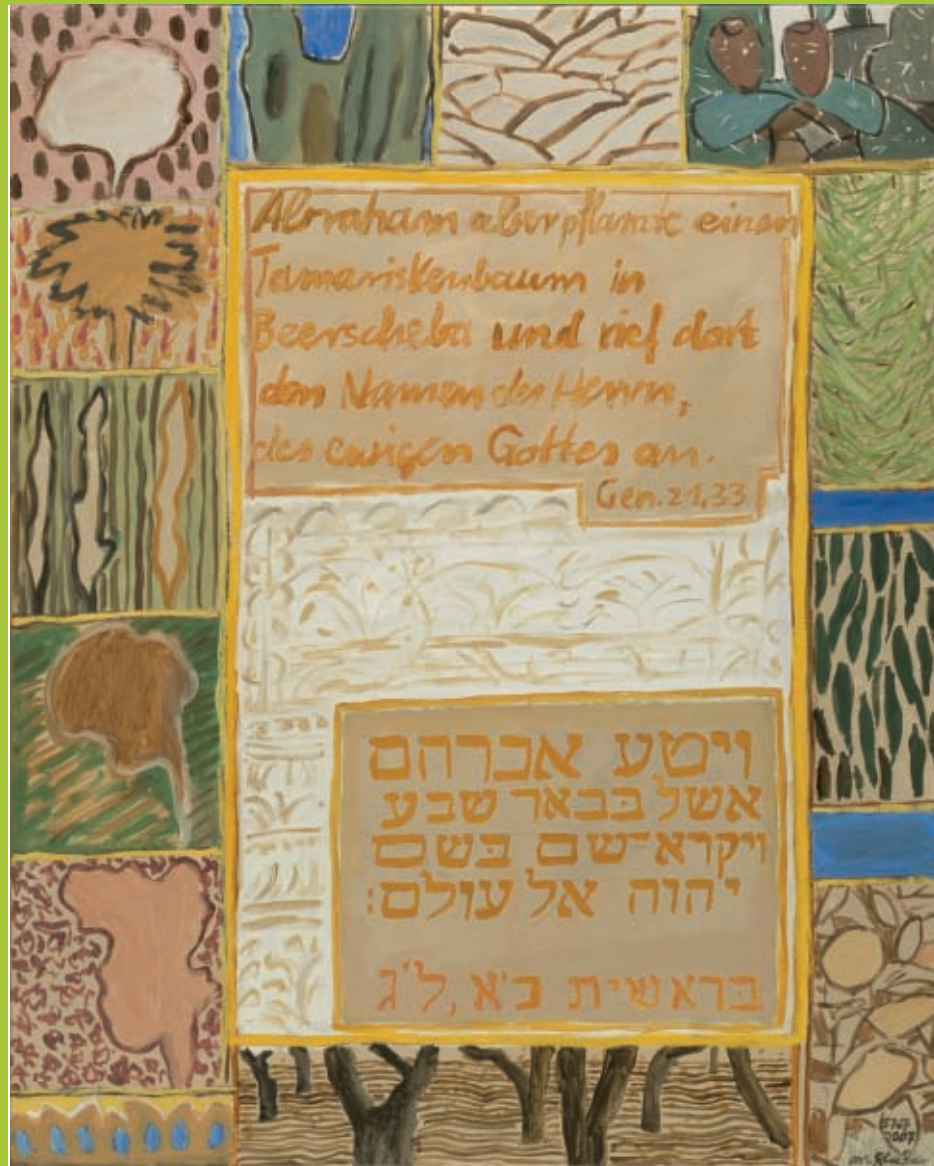 Abraham aber pflanzte einen
Tamariskenbaum in
Beerscheba und rief dort
den Namen des Herrn,
des ewigen Gottes an.
Gen. 21,33
ויטע אברהם
אשל בבאר שבע
ויקרא־שם בשם
יהוה אל עולם:
בראשית כ'א, ל'ג
5767
2007